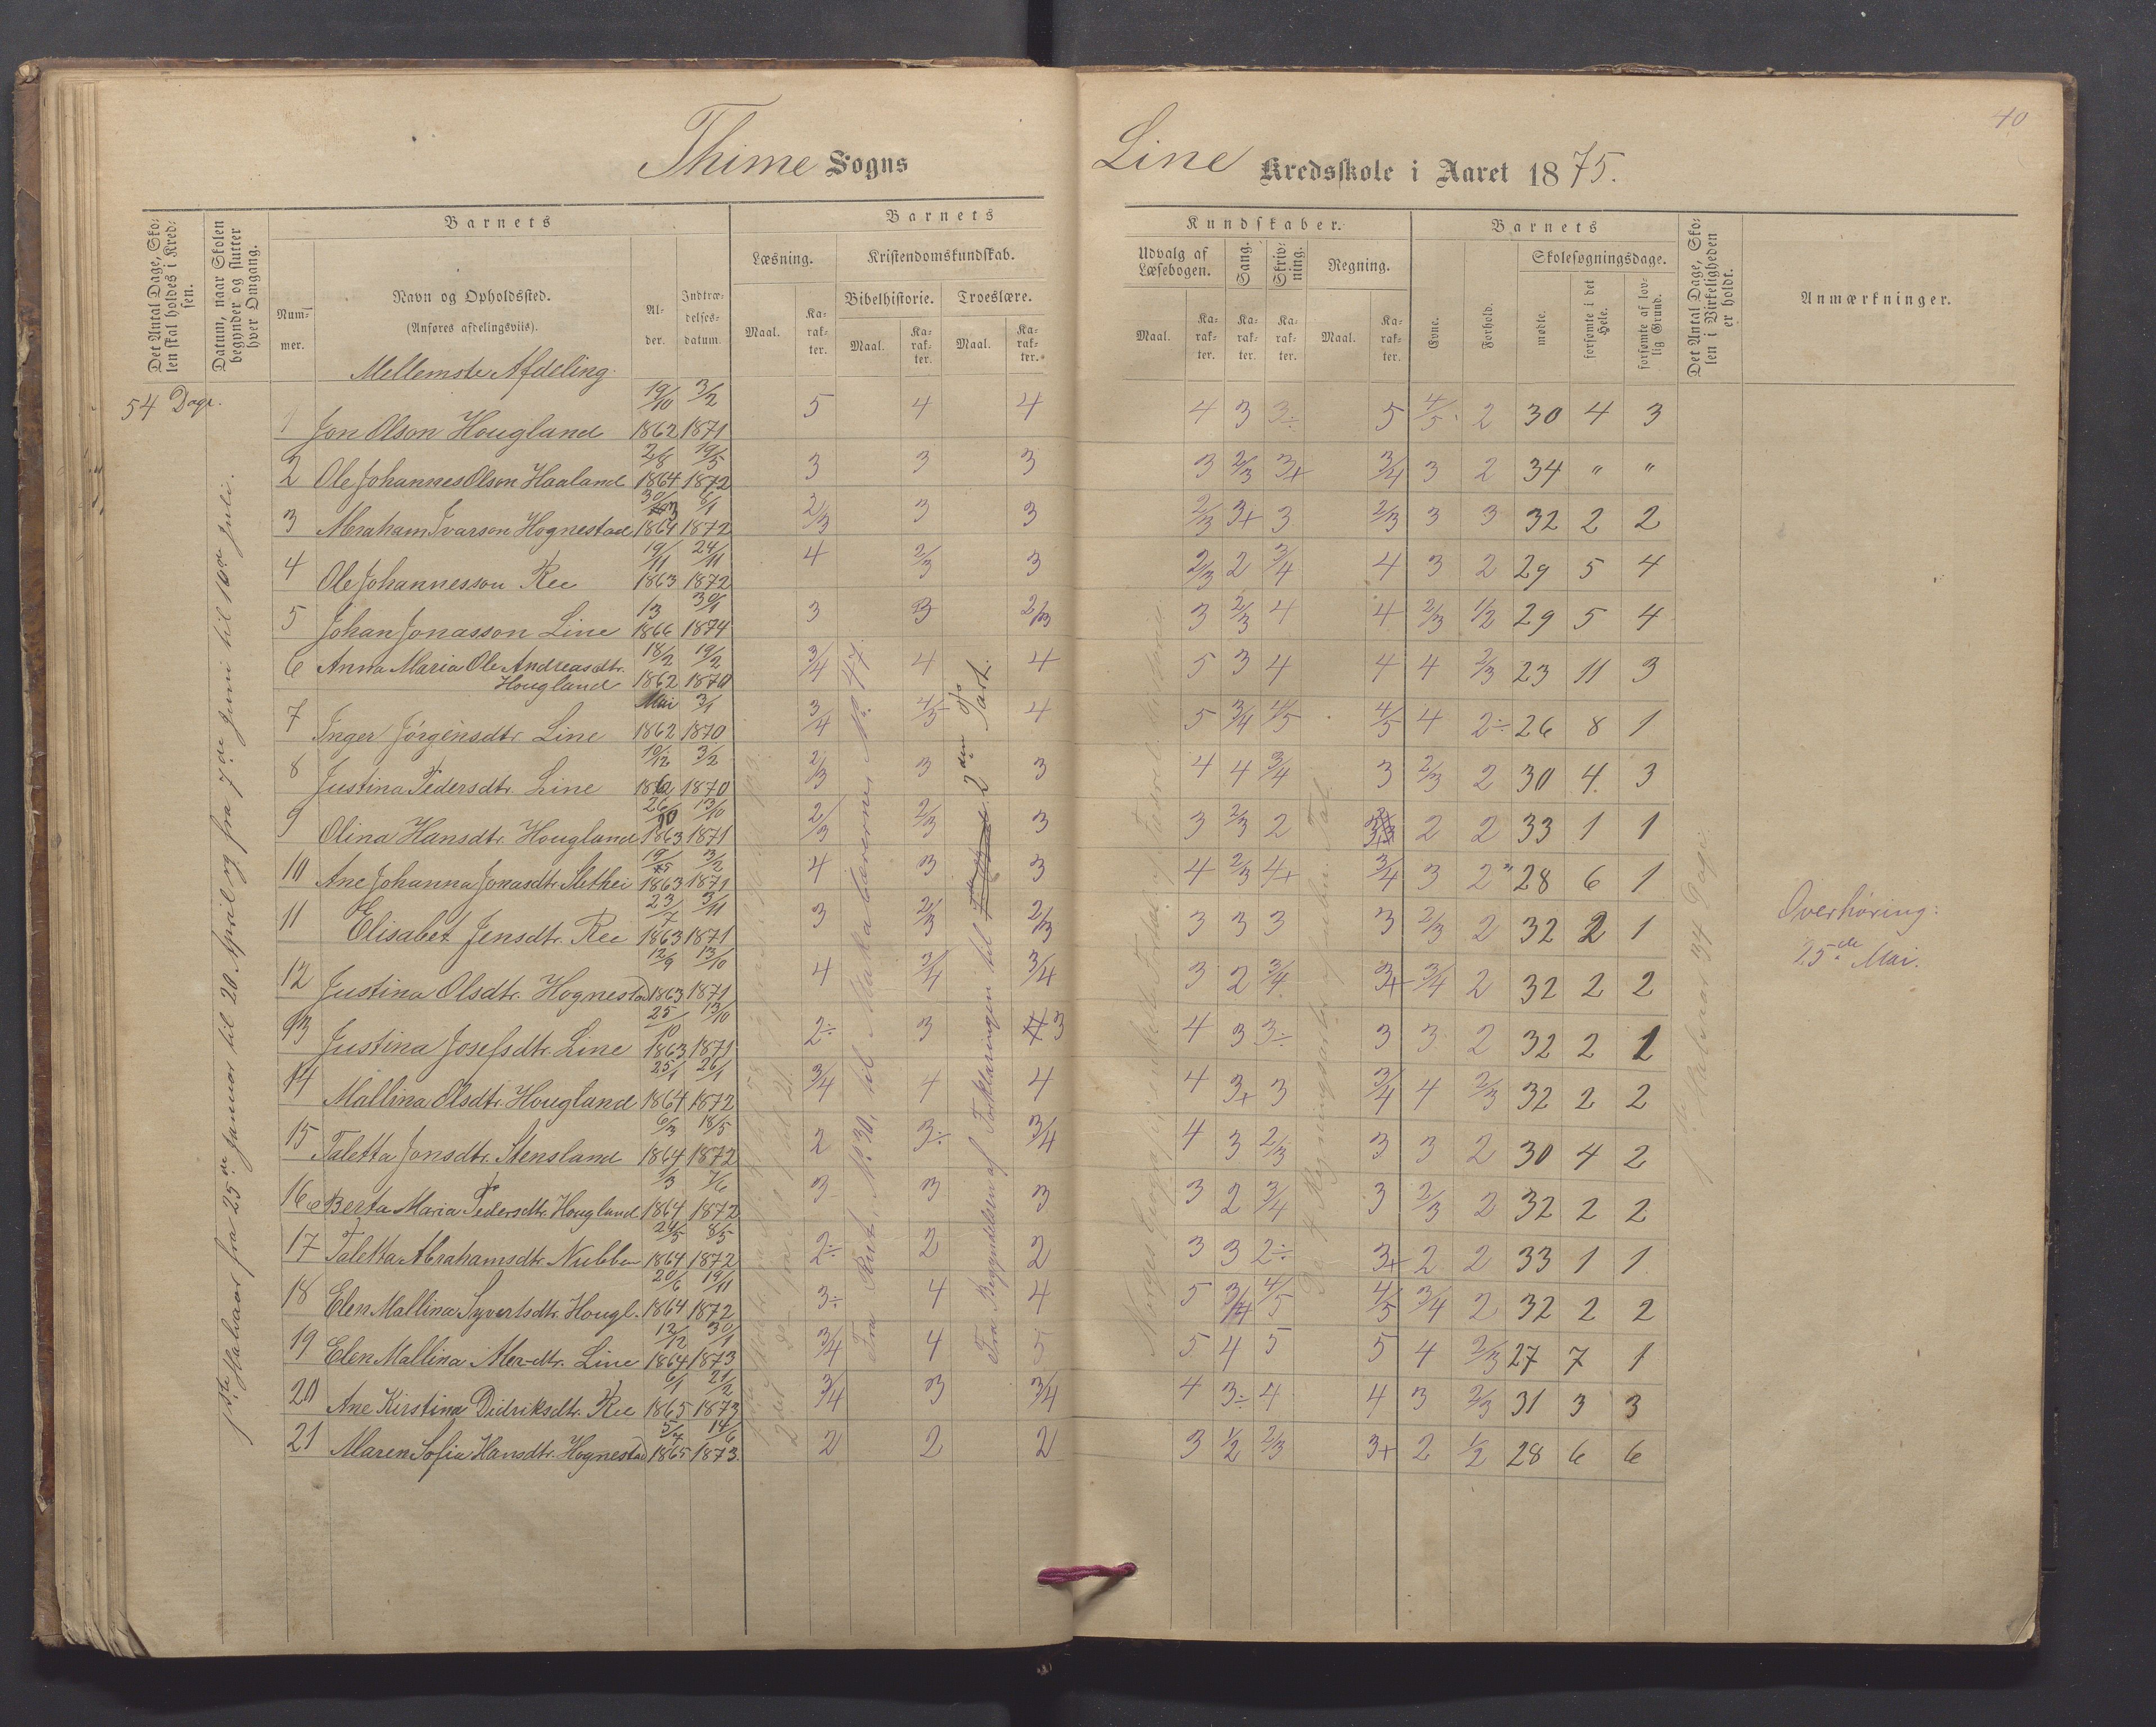 40
Thime Sogns
Line Kredsskole i Aaret 1875.
Det Antal Dage, Skolen skal holdes i Kredsen.
Datum, naar Skolen begynder og slutter hver Omgang.
Barnets
Nummer.
Navn og Opholdssted.
(Anføres afdelingsviis).
Alder.
Indtrædelsesdatum.
Barnets
Læsning.
Kristendomskundskab.
Bibelhistorie.
Troeslære.
Maal.
Karakter.
Maal.
Karakter.
Maal.
Karakter.
Kundskaber.
Udvalg af Læsebogen.
Sang.
Skrivning.
Regning.
Maal.
Karakter.
Karakter.
Karakter.
Maal.
Karakter.
Barnets
Evne.
Forhold.
Skolesøgningsdage.
mødte.
forsømte i det Hele.
forsømte af lovlig Grund.
Det Antal Dage, Skolen i Virkeligheden er holdt.
Anmærkninger.
Mellemste Afdeling.
54 Dage.
1ste Halvaar fra 25de Januar til 20 April og fra 7de Juni til 10de Juli.
1 Jon Olson Hougland 19/10 1862 3/2 1871 5 4 4 4 3 3÷ 5 4/5 2 30 4 3
2 Ole Johannes Olson Haaland 2/8 1864 19/5 1872 3 3 3 3 2/3 3+ 3/4 3 2 34 " "
3 Abraham Ivarson Hognestad 30/3 1864 8/1 1872 2/3 3 3 2/3 3+ 3 2/3 3 3 32 2 2
4 Ole Johannesson Ree 19/11 1863 24/11 1872 4 2/3 3 2/3 2 3/4 4 3 2 29 5 4
5 Johan Jonasson Line 1/3 1866 30/1 1874 3 3 2/3 3 2/3 4 4 2/3 1/2 29 5 4
6 Anna Maria Ole Andreasdtr. Hougland 18/2 1862 19/2 1870 3/4 4 4 5 3 4 4 4 2/3 23 11 3
7 Inger Jørgensdtr. Line Mai 1862 3/1 1870 3/4 4/5 4 5 3/4 4/5 4/5 4 2÷ 26 8 1
8 Justina Pedersdtr. Line 10/12 1862 3/2 1870 2/3 3 3 4 4 3/4 3 2/3 2 30 4 3
9 Olina Hansdtr. Hougland 26/10 1863 13/10 1871 2/3 2/3 3 3 2/3 2 2 2 33 1 1
10 Ane Johanna Jonasdtr. Slethei 19/5 1863 3/2 1871 4 3 3 4 2/3 4+ 3/4 3 2 28 6 1
11 Elisabet Jensdtr. Ree 23/7 1863 3/11 1871 3 2/3 2/3 3 3 3 3 2/3 2 32 2 1
12 Justina Olsdtr. Hognestad 12/9 1863 13/10 1871 4 3/4 3/4 3 2 3/4 3+ 3/4 2 32 2 2
13 Justina Josefsdtr. Line 25/10 1863 13/10 1871 2÷ 3 3 4 3 3÷ 3 3 2 32 2 1
14 Mallina Olsdtr. Hougland 25/1 1864 26/1 1872 3/4 4 4 4 3+ 3 3/4 4 2/3 32 2 2
15 Taletta Jonsdtr. Stensland 6/3 1864 18/5 1872 2 3÷ 3/4 4 3 2/3 3 3 2 30 4 2
16 Berta Maria Pedersdtr. Hougland 1/3 1864 7/6 1872 3 3 3 3 2 3/4 3 2/3 2 32 2 2
17 Taletta Abrahamsdtr. Nubben 24/5 1864 8/5 1872 2÷ 2 2 3 3 2÷ 3+ 2 2 33 1 1
18 Elen Mallina Syvertsdtr. Hougl. 20/6 1864 19/11 1872 3÷ 4 4 5 3/4 4/5 4/5 3/4 2 32 2 2
19 Elen Mallina Line 12/12 1864 30/1 1873 3/4 4 5 5 4 5 5 4 2/3 27 7 1
20 Ane Kirstina Didriksdtr. Ree 6/1 1865 21/2 1873 3/4 3 3/4 4 3÷ 4 4 3 2/3 31 3 3
21 Maren Sofia Hansdtr. Hognestad 5/7 1865 14/6 1873. 2 2 2 3 1/2 2/3 3+ 2 1/2 28 6 6
Fra Rut, No. 30, til Makabæerne, No. 47
Fra Begyndelsen af Forklaringen til 2den Part.
De 4 Regningsarter
1ste Halvaar 34 Dage
Overhøring:
25de Mai.